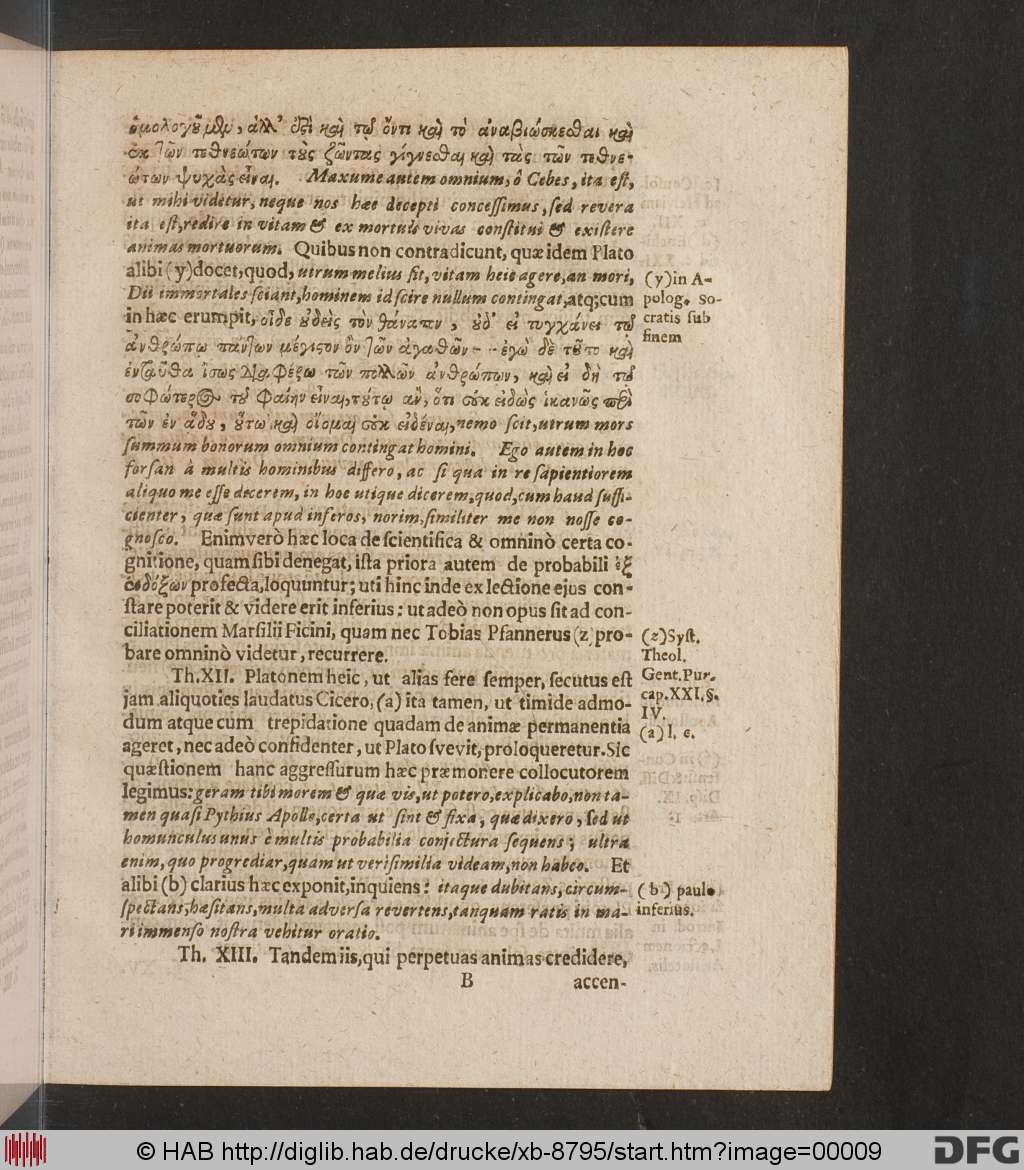 ὁμολογοῦμεν, ἀλλ' ἔςι καὶ τῷ ὄντι καὶ τὸ ἀναβιώσκεσθαι καὶ
ἐκ τῶν τεθνεώτων τοὺς ζῶντας γίγνεσθαι καὶ τὰς τῶν τεθνε-
ώτων ψυχὰς εἶναι. Maxume autem omnium, ô Cebes, ita est,
ut mihi videtur, neque nos hæc decepti concessimus, sed revera
ita est, redire in vitam & ex mortuis vivas constitui & existere
animas mortuorum. Quibus non contradicunt, quæ idem Plato
alibi (y) docet, quod, utrum melius sit, vitam heic agere, an mori,
Dii immortales sciant, hominem id scire nullum contingat, atq; cum
in hæc erumpit, οἶδε οὐδεὶς τὸν θάνατον, οὐδ' εἰ τυγχάνει τῷ
ἀνθρώπῳ πάντων μέγιςον ὂν τῶν ἀγαθῶν - - ἐγὼ δὲ τοῦτο καὶ
ἐνταῦθα ἴσως διαφέρω τῶν πολλῶν ἀνθρώπων, καὶ εἰ δή τῳ
σοφώτερος του φαίην εἶναι, τούτῳ ἂν, ὅτι οὐκ εἰδὼς ἱκανῶς περὶ
τῶν ἐν ᾅδου, οὕτω καὶ οἴομαι οὐκ εἰδέναι, nemo scit, utrum mors
summum bonorum omnium contingat homini. Ego autem in hoc
forsan à multis hominibus differo, ac si qua in re sapientiorem
aliquo me esse dicerem, in hoc utique dicerem, quod, cum haud suffi-
cienter, quæ sunt apud inferos, norim, similiter me non nosse co-
gnosco. Enimverò hæc loca de scientifica & omninò certa co-
gnitione, quam sibi denegat, ista priora autem de probabili ἐξ
ἐνδόξων profecta, loquuntur; uti hinc inde ex lectione ejus con-
stare poterit & videre erit inferius: ut adeò non opus sit ad con-
ciliationem Marsilii Ficini, quam nec Tobias Pfannerus (z) pro-
bare omninò videtur, recurrere.
Th. XII. Platonem heic, ut alias fere semper, secutus est
jam aliquoties laudatus Cicero, (a) ita tamen, ut timide admo-
dum atque cum trepidatione quadam de animæ permanentia
ageret, nec adeò confidenter, ut Plato svevit, proloqueretur. Sic
quæstionem hanc aggressurum hæc præmonere collocutorem
legimus: geram tibi morem & quæ vis, ut potero, explicabo, non ta-
men quasi Pythius Apollo, certa ut sint & fixa, quæ dixero, sed ut
homunculus unus è multis probabilia conjectura sequens; ultra
enim, quo progrediar, quam ut verisimilia videam, non habeo. Et
alibi (b) clarius hæc exponit, inquiens: itaque dubitans, circum-
spectans, hæsitans, multa adversa revertens, tanquam ratis in ma-
ri immenso nostra vehitur oratio.
Th. XIII. Tandem iis, qui perpetuas animas credidere,
B accen-
(y) in A-
polog. So-
cratis sub
finem
(z) Syst.
Theol.
Gent. Pur.
cap. XXI. §.
IV.
(a) l. c.
(b) paulo
inferius.
© HAB http://diglib.hab.de/drucke/xb-8795/start.htm?image=00009
DFG